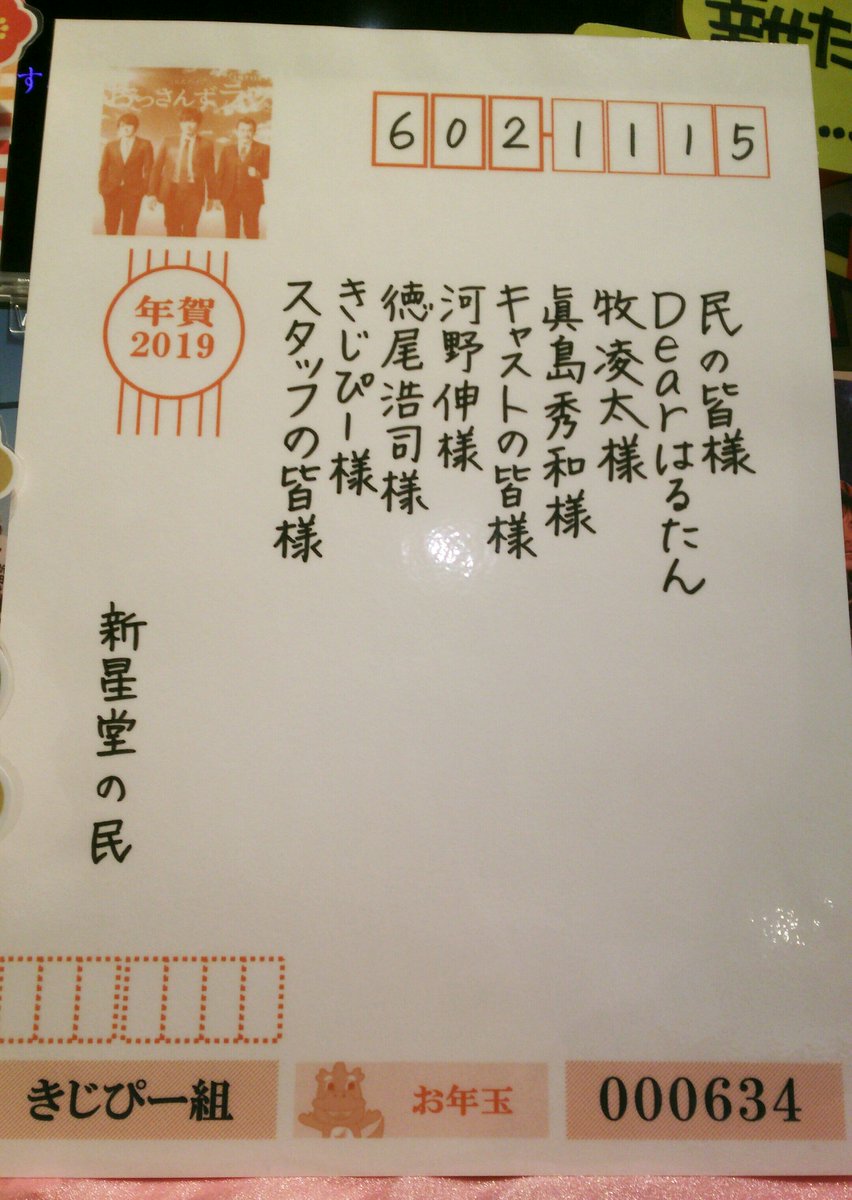 新せた
...
す
おっさんずラブ
602-1115
年賀
2019
民の皆様
Dearはるたん
牧凌太様
眞島秀和様
キャストの皆様
河野伸様
徳尾浩司様
きじぴー様
スタッフの皆様
新星堂の民
きじぴー組
お年玉
000634